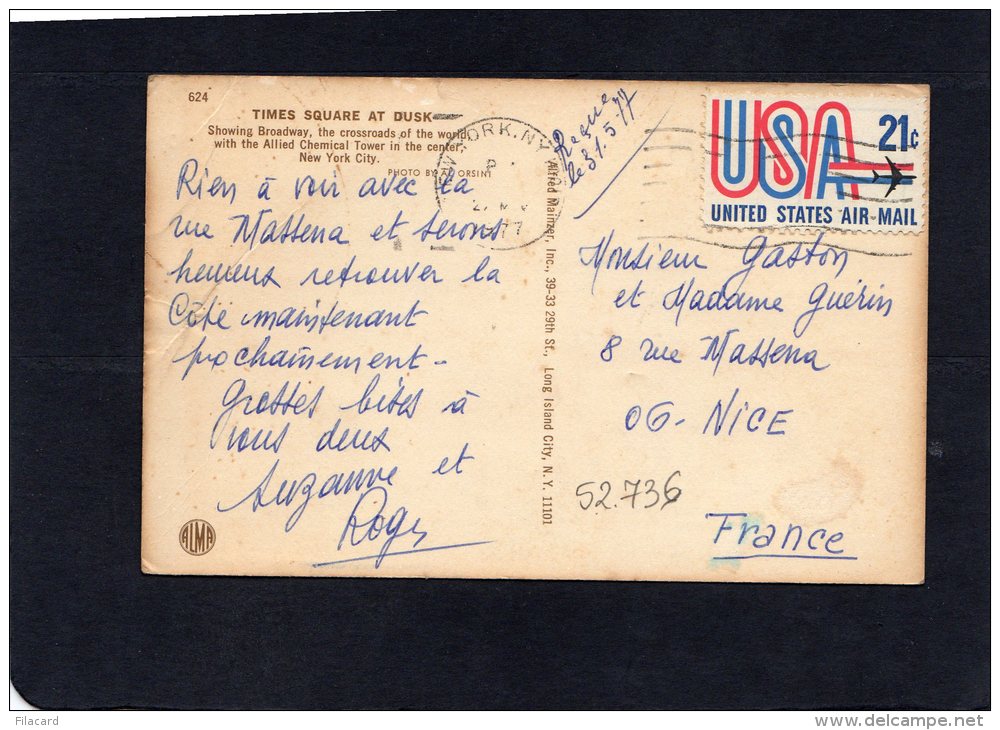 624
TIMES SQUARE AT DUSK
Showing Broadway, the crossroads of the world,
with the Allied Chemical Tower in the center,
New York City.
PHOTO BY A. ORSINI
Rien à voir avec La
rue Massena et serons
heureux retrouver la
Côte maintenant
prochainement -
Grosses bises à
vous deux
Suzanne et
Roger
ALMA
Alfred Mainzer, Inc., 39-33 29th St., Long Island City, N. Y. 11101
NEW YORK, NY
27
77
Reçue
le 31.5.77
USA 21c
UNITED STATES AIR-MAIL
Monsieur Gaston
et Madame Guérin
8 rue Massena
06 - NICE
52.736
France
Filacard
www.delcampe.net